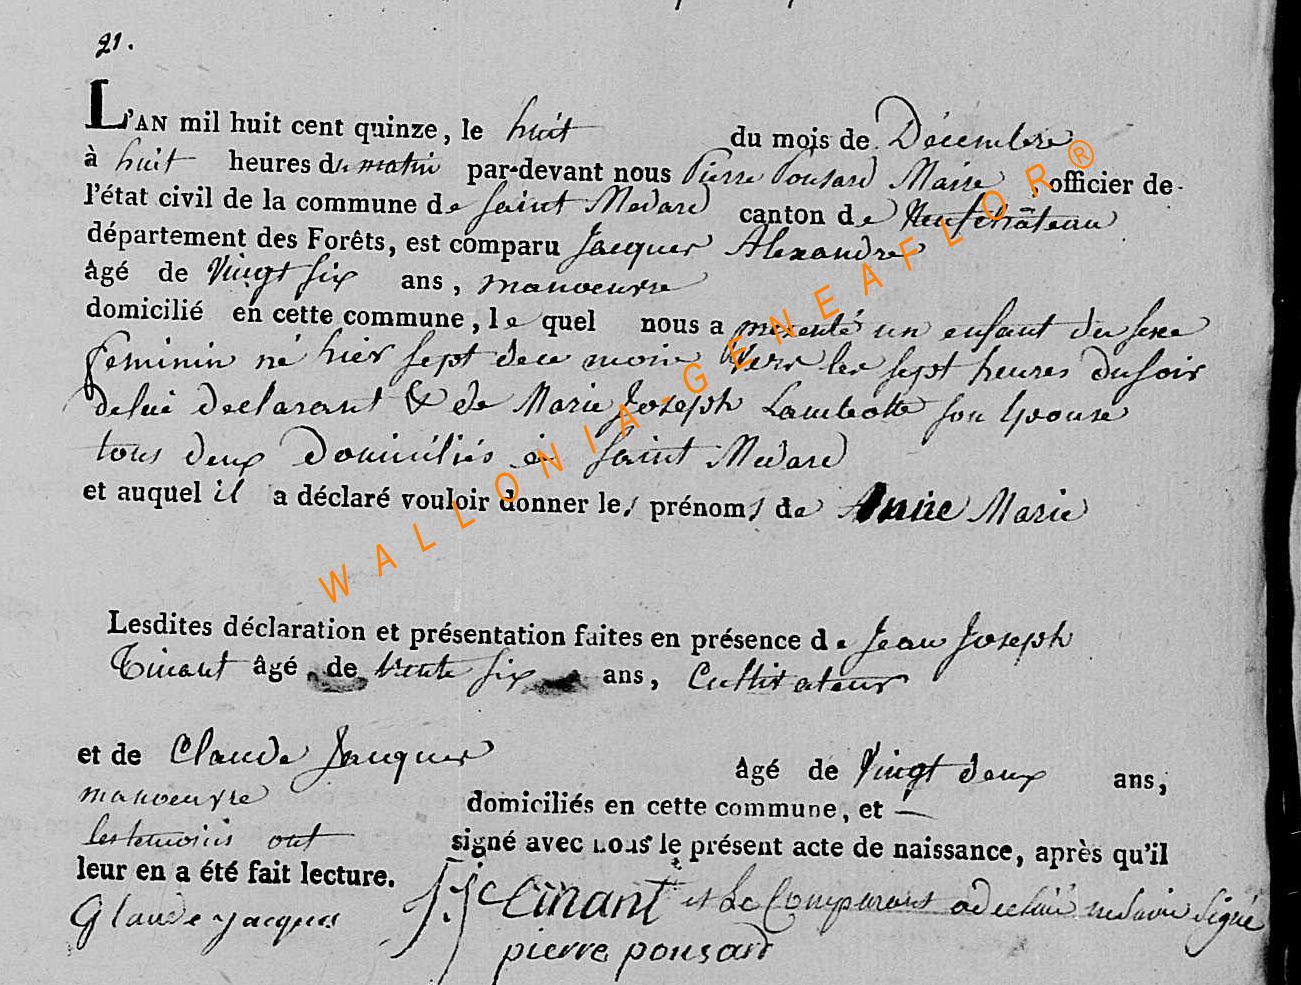 21.
L'AN mil huit cent quinze, le huit du mois de Décembre
à huit heures du matin par-devant nous Pierre Pousard Maire, officier de
l'état civil de la commune de Saint Medard canton de Neufchâteau
département des Forêts, est comparu Jacques Alexandre
âgé de Vingt six ans, manoeuvre
domicilié en cette commune, le quel nous a présenté un enfant du sexe
feminin né hier sept dece mois Vers les sept heures du soir
de lui declarant & de Marie Joseph Lambotte son Epouse
tous deux Domiciliés à Saint Medard
et auquel il a déclaré vouloir donner les prénoms de Anne Marie
Lesdites déclaration et présentation faites en présence de Jean Joseph
Tinant âgé de trente six ans, Cultivateur
et de Claude Jacques âgé de Vingt deux ans,
manoeuvre domiciliés en cette commune, et —
les temoins ont signé avec nous le présent acte de naissance, après qu'il
leur en a été fait lecture. J. J. Tinant et Le Comparant a declaré ne savoir signé
Glaude jacques
pierre pousard
WALLONIA-GENEAFLOR®